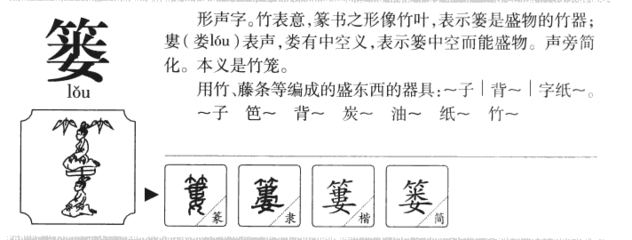 篓
lǒu
形声字。竹表意,篆书之形像竹叶,表示篓是盛物的竹器;
婁(娄lóu)表声,娄有中空义,表示篓中空而能盛物。声旁简
化。本义是竹笼。
用竹、藤条等编成的盛东西的器具:～子｜背～｜字纸～。
～子 笆～ 背～ 炭～ 油～ 纸～ 竹～
簍 篆
簍 隶
簍 楷
篓 简